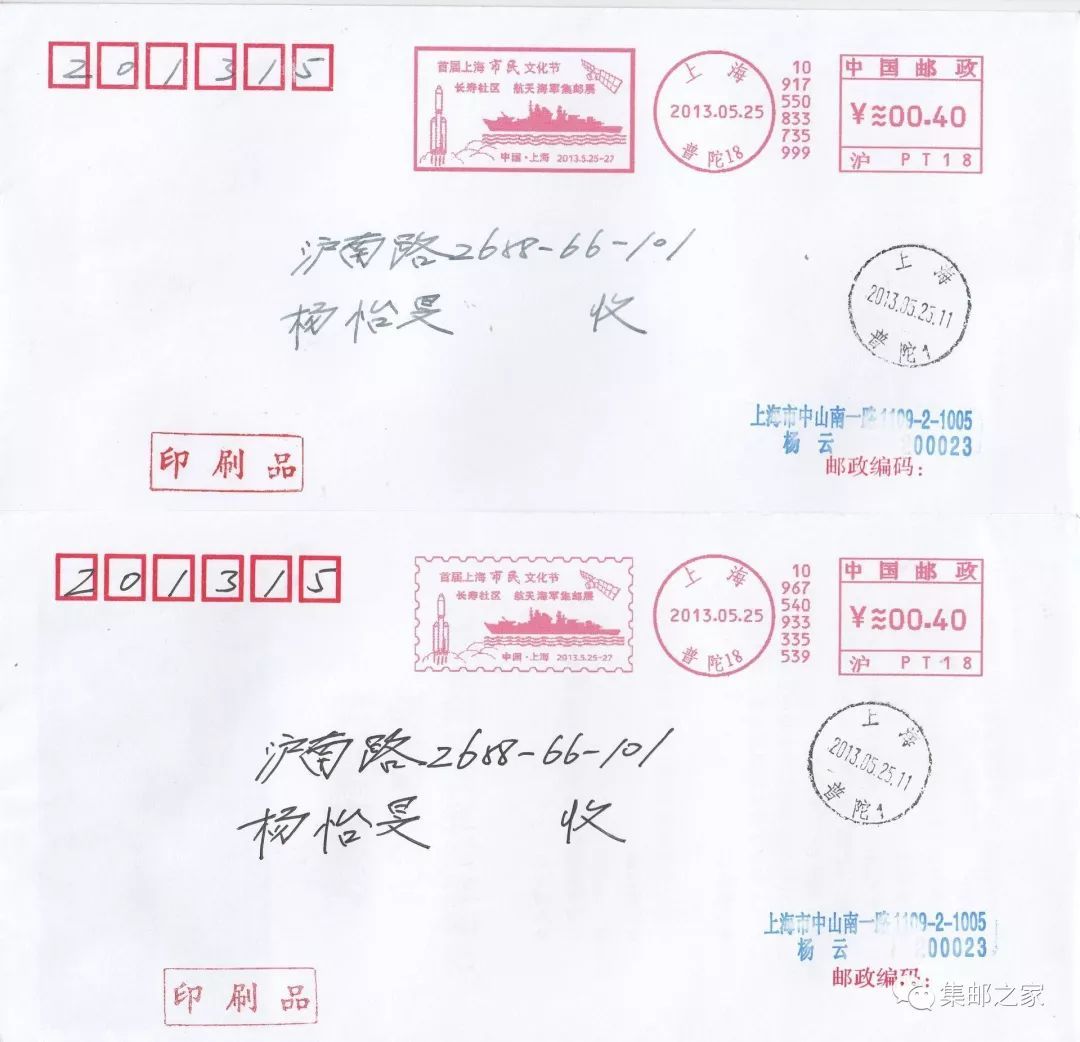 201315
首届上海市民文化节
长寿社区 航天海军集邮展
中国·上海 2013.5.25-27
上海
2013.05.25
普陀18
10
917
550
833
735
999
中国邮政
￥≈00.40
沪 PT18
沪南路2688-66-101
杨怡旻 收
上海
2013.05.25.11
普陀
印刷品
上海市中山南一路1109-2-1005
杨云 200023
邮政编码：
201315
首届上海市民文化节
长寿社区 航天海军集邮展
中国·上海 2013.5.25-27
上海
2013.05.25
普陀18
10
967
540
933
335
539
中国邮政
￥≈00.40
沪 PT18
沪南路2688-66-101
杨怡旻 收
上海
2013.05.25.11
普陀
印刷品
上海市中山南一路1109-2-1005
杨云 200023
邮政编码：
集邮之家